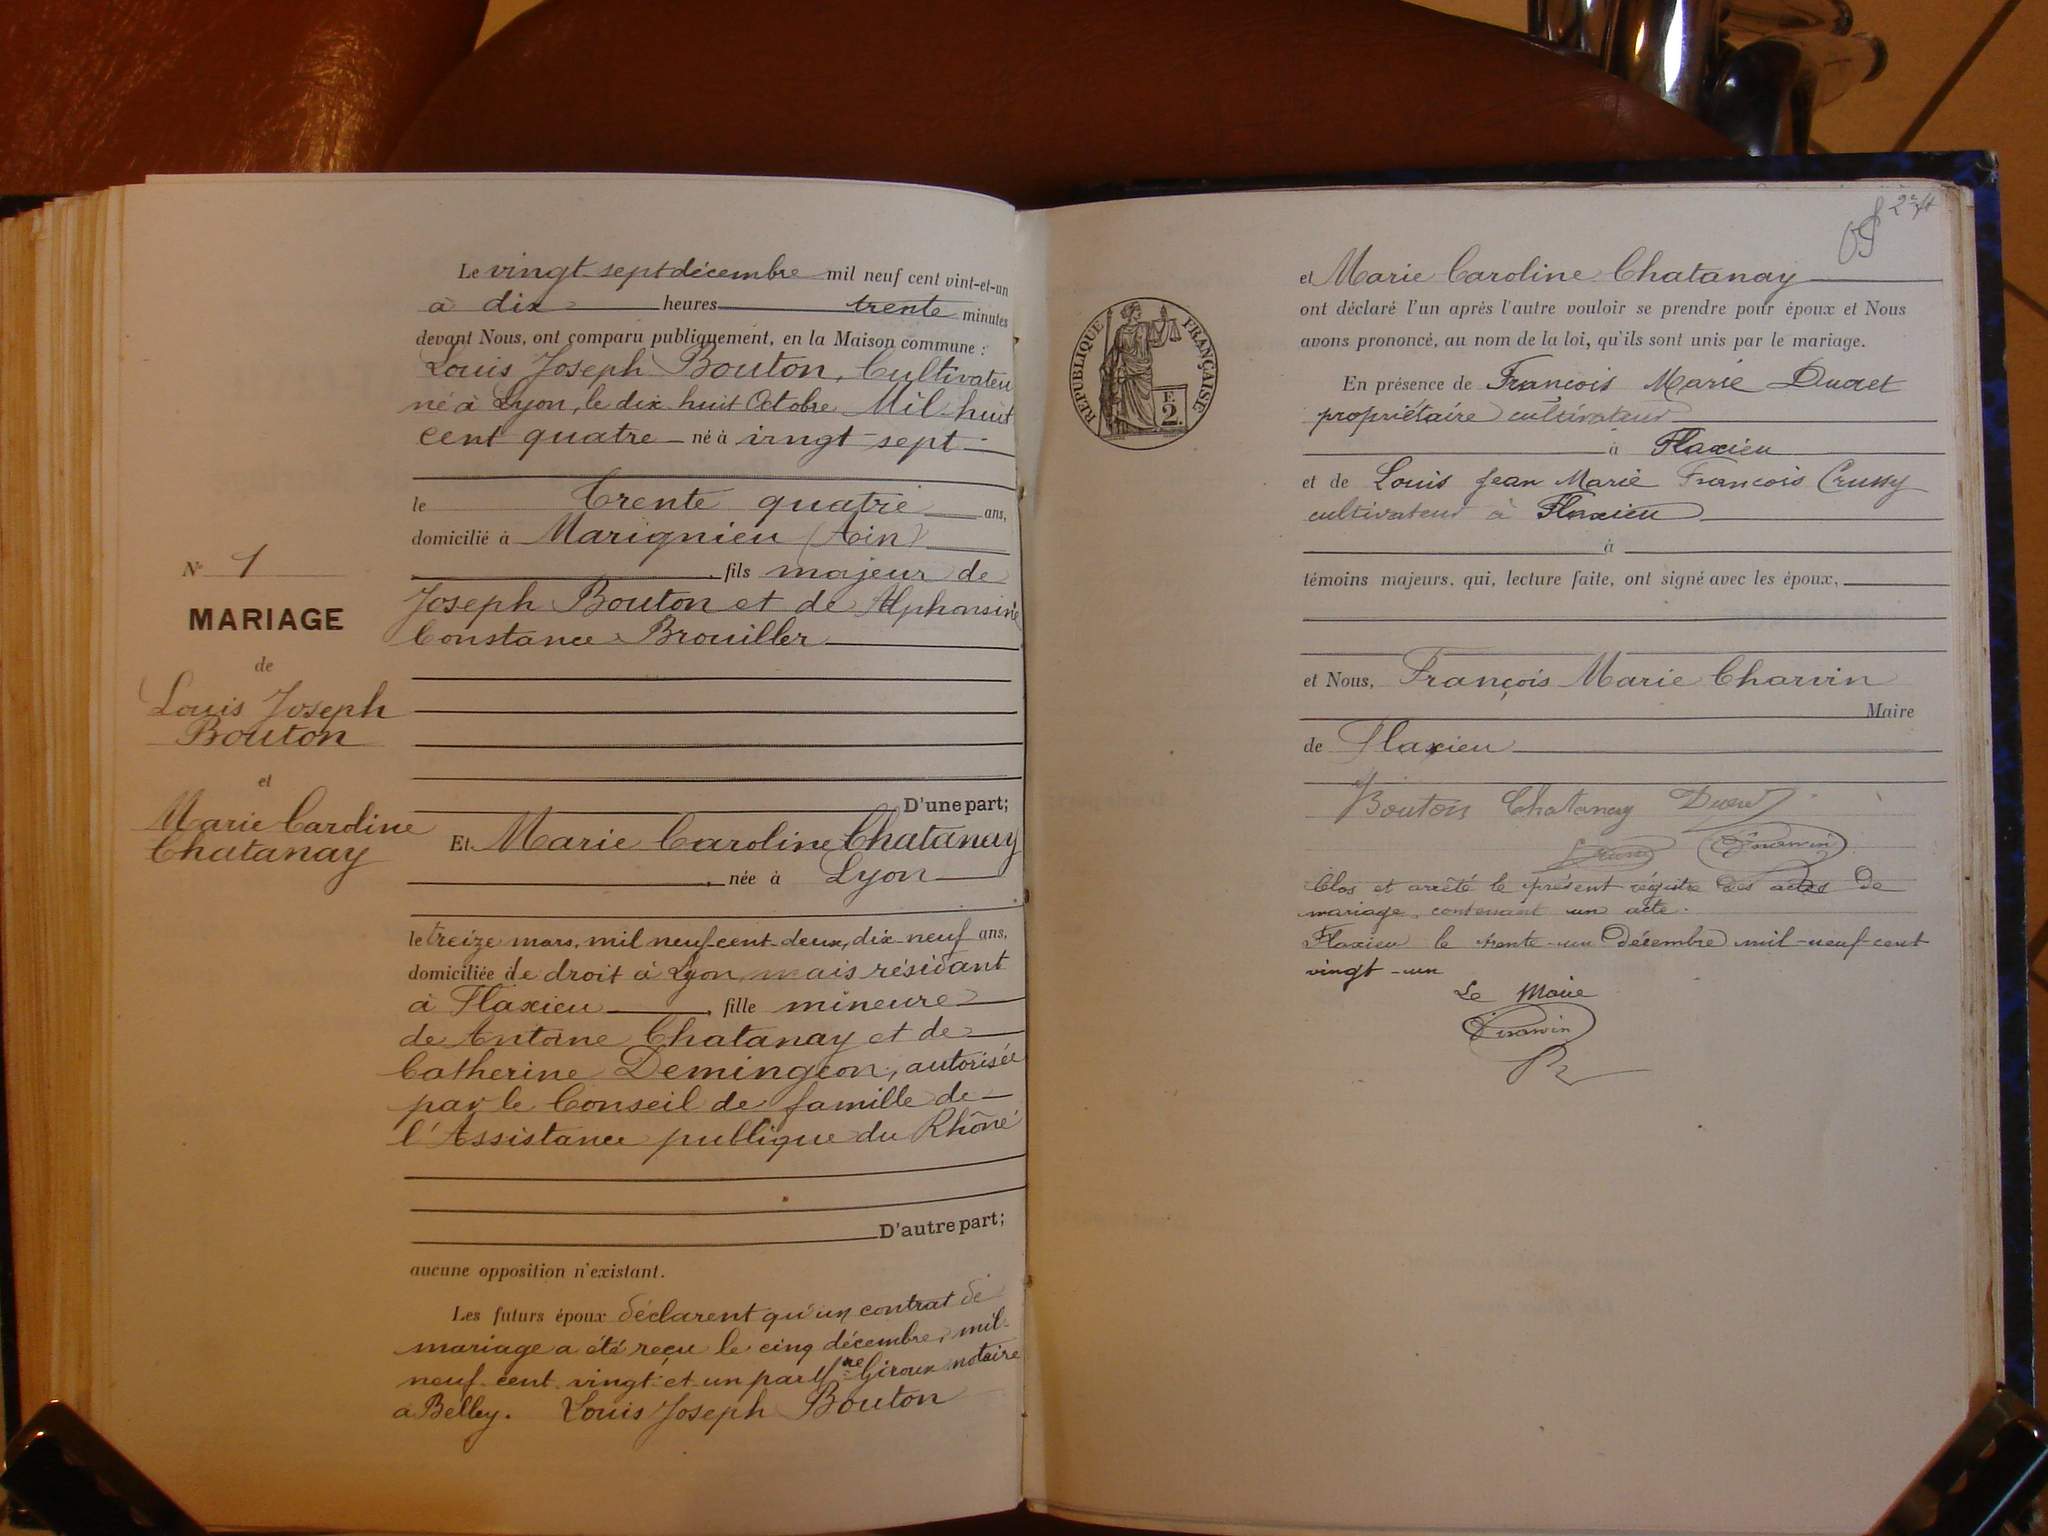 Le vingt sept décembre mil neuf cent vint-et-un
à dix heures trente minutes
devant Nous, ont comparu publiquement, en la Maison commune :
Louis Joseph Bouton, Cultivateu
né à Lyon, le dix huit Octobre Mil-huit
cent quatre - né à vingt-sept -
le Trente quatre ans,
domicilié à Marignieu (Ain)
, fils majeur de
Joseph Bouton et de Alphonsine
Constance Brouiller
N° 1
MARIAGE
de
Louis Joseph
Bouton
et
Marie Caroline
Chatanay
D'une part;
Et Marie Caroline Chatanay
, née à Lyon
le treize mars, mil neuf-cent-deux, dix-neuf ans,
domiciliée de droit à Lyon, mais résidant
à Flaxieu , fille mineure
de Antoine Chatanay et de
Catherine Demingeon, autorisée
par le Conseil de famille de
l'Assistance publique du Rhône
D'autre part;
aucune opposition n'existant.
Les futurs époux déclarent qu'un contrat de
mariage a été reçu le cinq décembre, mil-
neuf-cent-vingt-et-un par Mre Giroux notaire
à Belley. Louis Joseph Bouton
RÉPUBLIQUE FRANÇAISE
E
2.
et Marie Caroline Chatanay
ont déclaré l'un après l'autre vouloir se prendre pour époux et Nous
avons prononcé, au nom de la loi, qu'ils sont unis par le mariage.
En présence de François Marie Ducret
propriétaire cultivateur
à Flaxieu
et de Louis Jean Marie François Crussy
cultivateur à Flaxieu
à
témoins majeurs, qui, lecture faite, ont signé avec les époux,
et Nous, François Marie Charvin
Maire
de Flaxieu
Bouton Chatanay Ducret
Charvin
Clos et arrêté le présent régistre des actes de
mariage, contenant un acte.
Flaxieu le trente-un Décembre mil-neuf-cent
vingt-un
Le Maire
Charvin